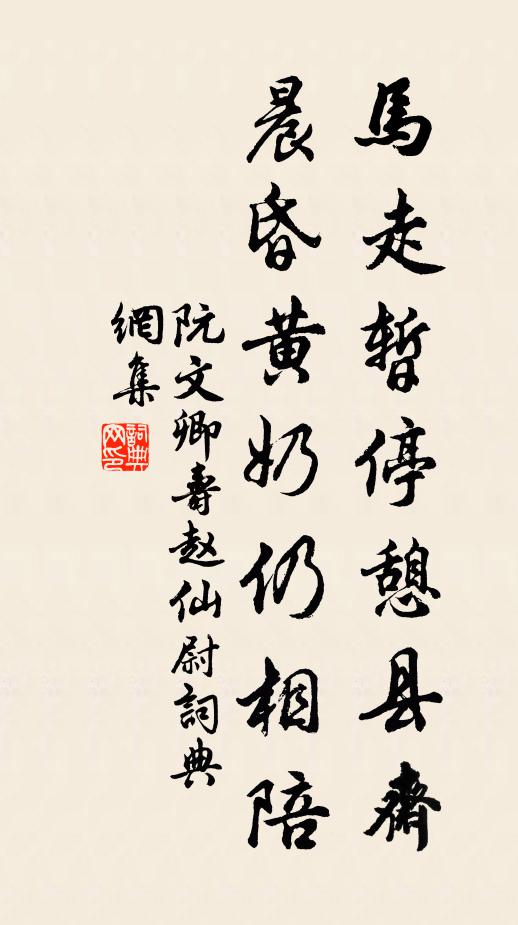 馬走暫停憩县齋
晨昏黄奶仍相陪
阮文卿壽赵仙尉詞典
網集
詞典网印